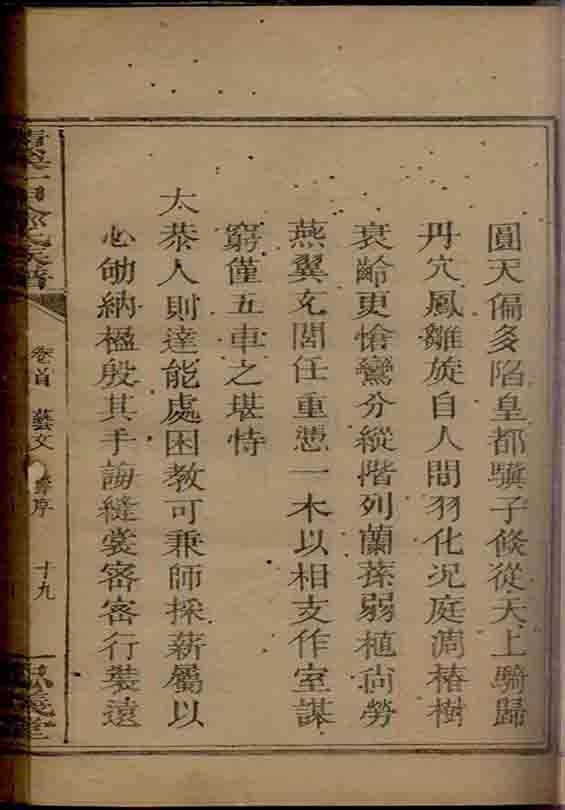 圓天偏多陷皇都驥子倐從天上騎歸
丹穴鳳雛旋自人間羽化况庭凋椿樹
衰齡更愴鸞分縱階列蘭蓀弱植尚勞
燕翼充閭任重慿一木以相支作室謀
窮僅五車之堪恃
太恭人則達能處困教可兼師採薪屬以
心劬納楹殷其手誨縫裳密密行裝遠
卷首 藝文 壽序 十九